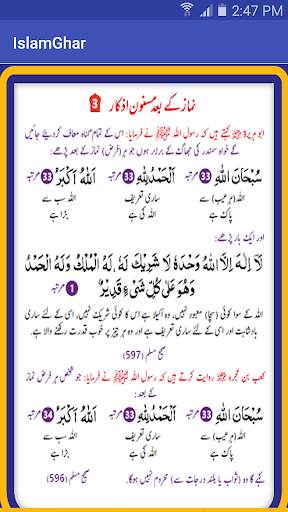 2:47 PM
IslamGhar
نماز کے بعد مسنون اذکار 3
ابو ہریرۃ کہتے ہیں کہ رسول اللہ ﷺ نے فرمایا: اس کے تمام گناہ معاف کردیئے جائیں
گے خواہ سمندر کی جھاگ کے برابر ہوں جو ہر (فرض) نماز کے بعد پڑھے:
سُبْحَانَ اللّٰهِ 33 مرتبہ اَلْحَمْدُلِلّٰهِ 33 مرتبہ اَللّٰهُ اَكْبَرُ 33 مرتبہ
اللہ (ہر عیب) سے ساری تعریف اللہ سب سے
پاک ہے اللہ کی ہے بڑا ہے
اور ایک بار پڑھے:
لَآ اِلٰهَ اِلَّا اللّٰهُ وَحْدَهٗ لَا شَرِيْكَ لَهٗ، لَهُ الْمُلْكُ وَلَهُ الْحَمْدُ
وَهُوَ عَلٰى كُلِّ شَىْءٍ قَدِيْرٌ 1 مرتبہ
اللہ کے سوا کوئی (سچا) معبود نہیں، وہ اکیلا ہے اس کا کوئی شریک نہیں، اسی کے لئے ساری
بادشاہت اور اسی کے لئے ساری تعریف ہے اور وہ ہر چیز پر خوب قدرت رکھنے والا ہے۔
صحیح مسلم (597)
کعب بن عجرہ روایت کرتے ہیں کہ رسول اللہ ﷺ نے فرمایا: جو شخص ہر فرض نماز
کے بعد:
سُبْحَانَ اللّٰهِ 33 مرتبہ اَلْحَمْدُلِلّٰهِ 33 مرتبہ اَللّٰهُ اَكْبَرُ 34 مرتبہ
اللہ (ہر عیب) سے ساری تعریف اللہ سب سے
پاک ہے اللہ کی ہے بڑا ہے
کہے گا وہ (ثواب یا بلند درجات سے) محروم نہیں ہوگا۔ صحیح مسلم (596)